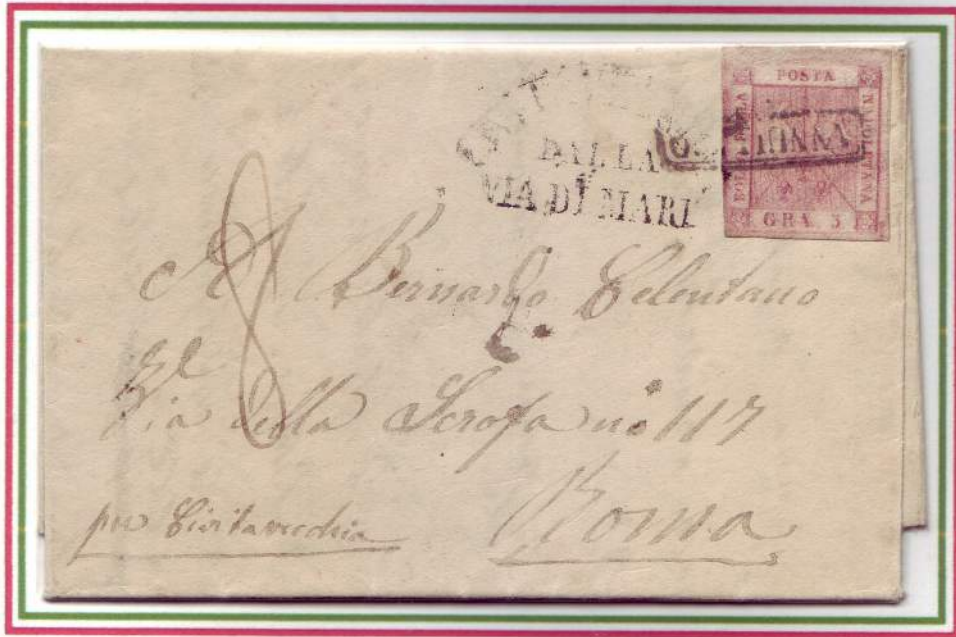 POSTA
NAPOLETANA
GRA. 5
DALLA
VIA DI MARE
8
A Bernardo Celentano
Via della Scrofa no 117
per Civitavecchia
Roma